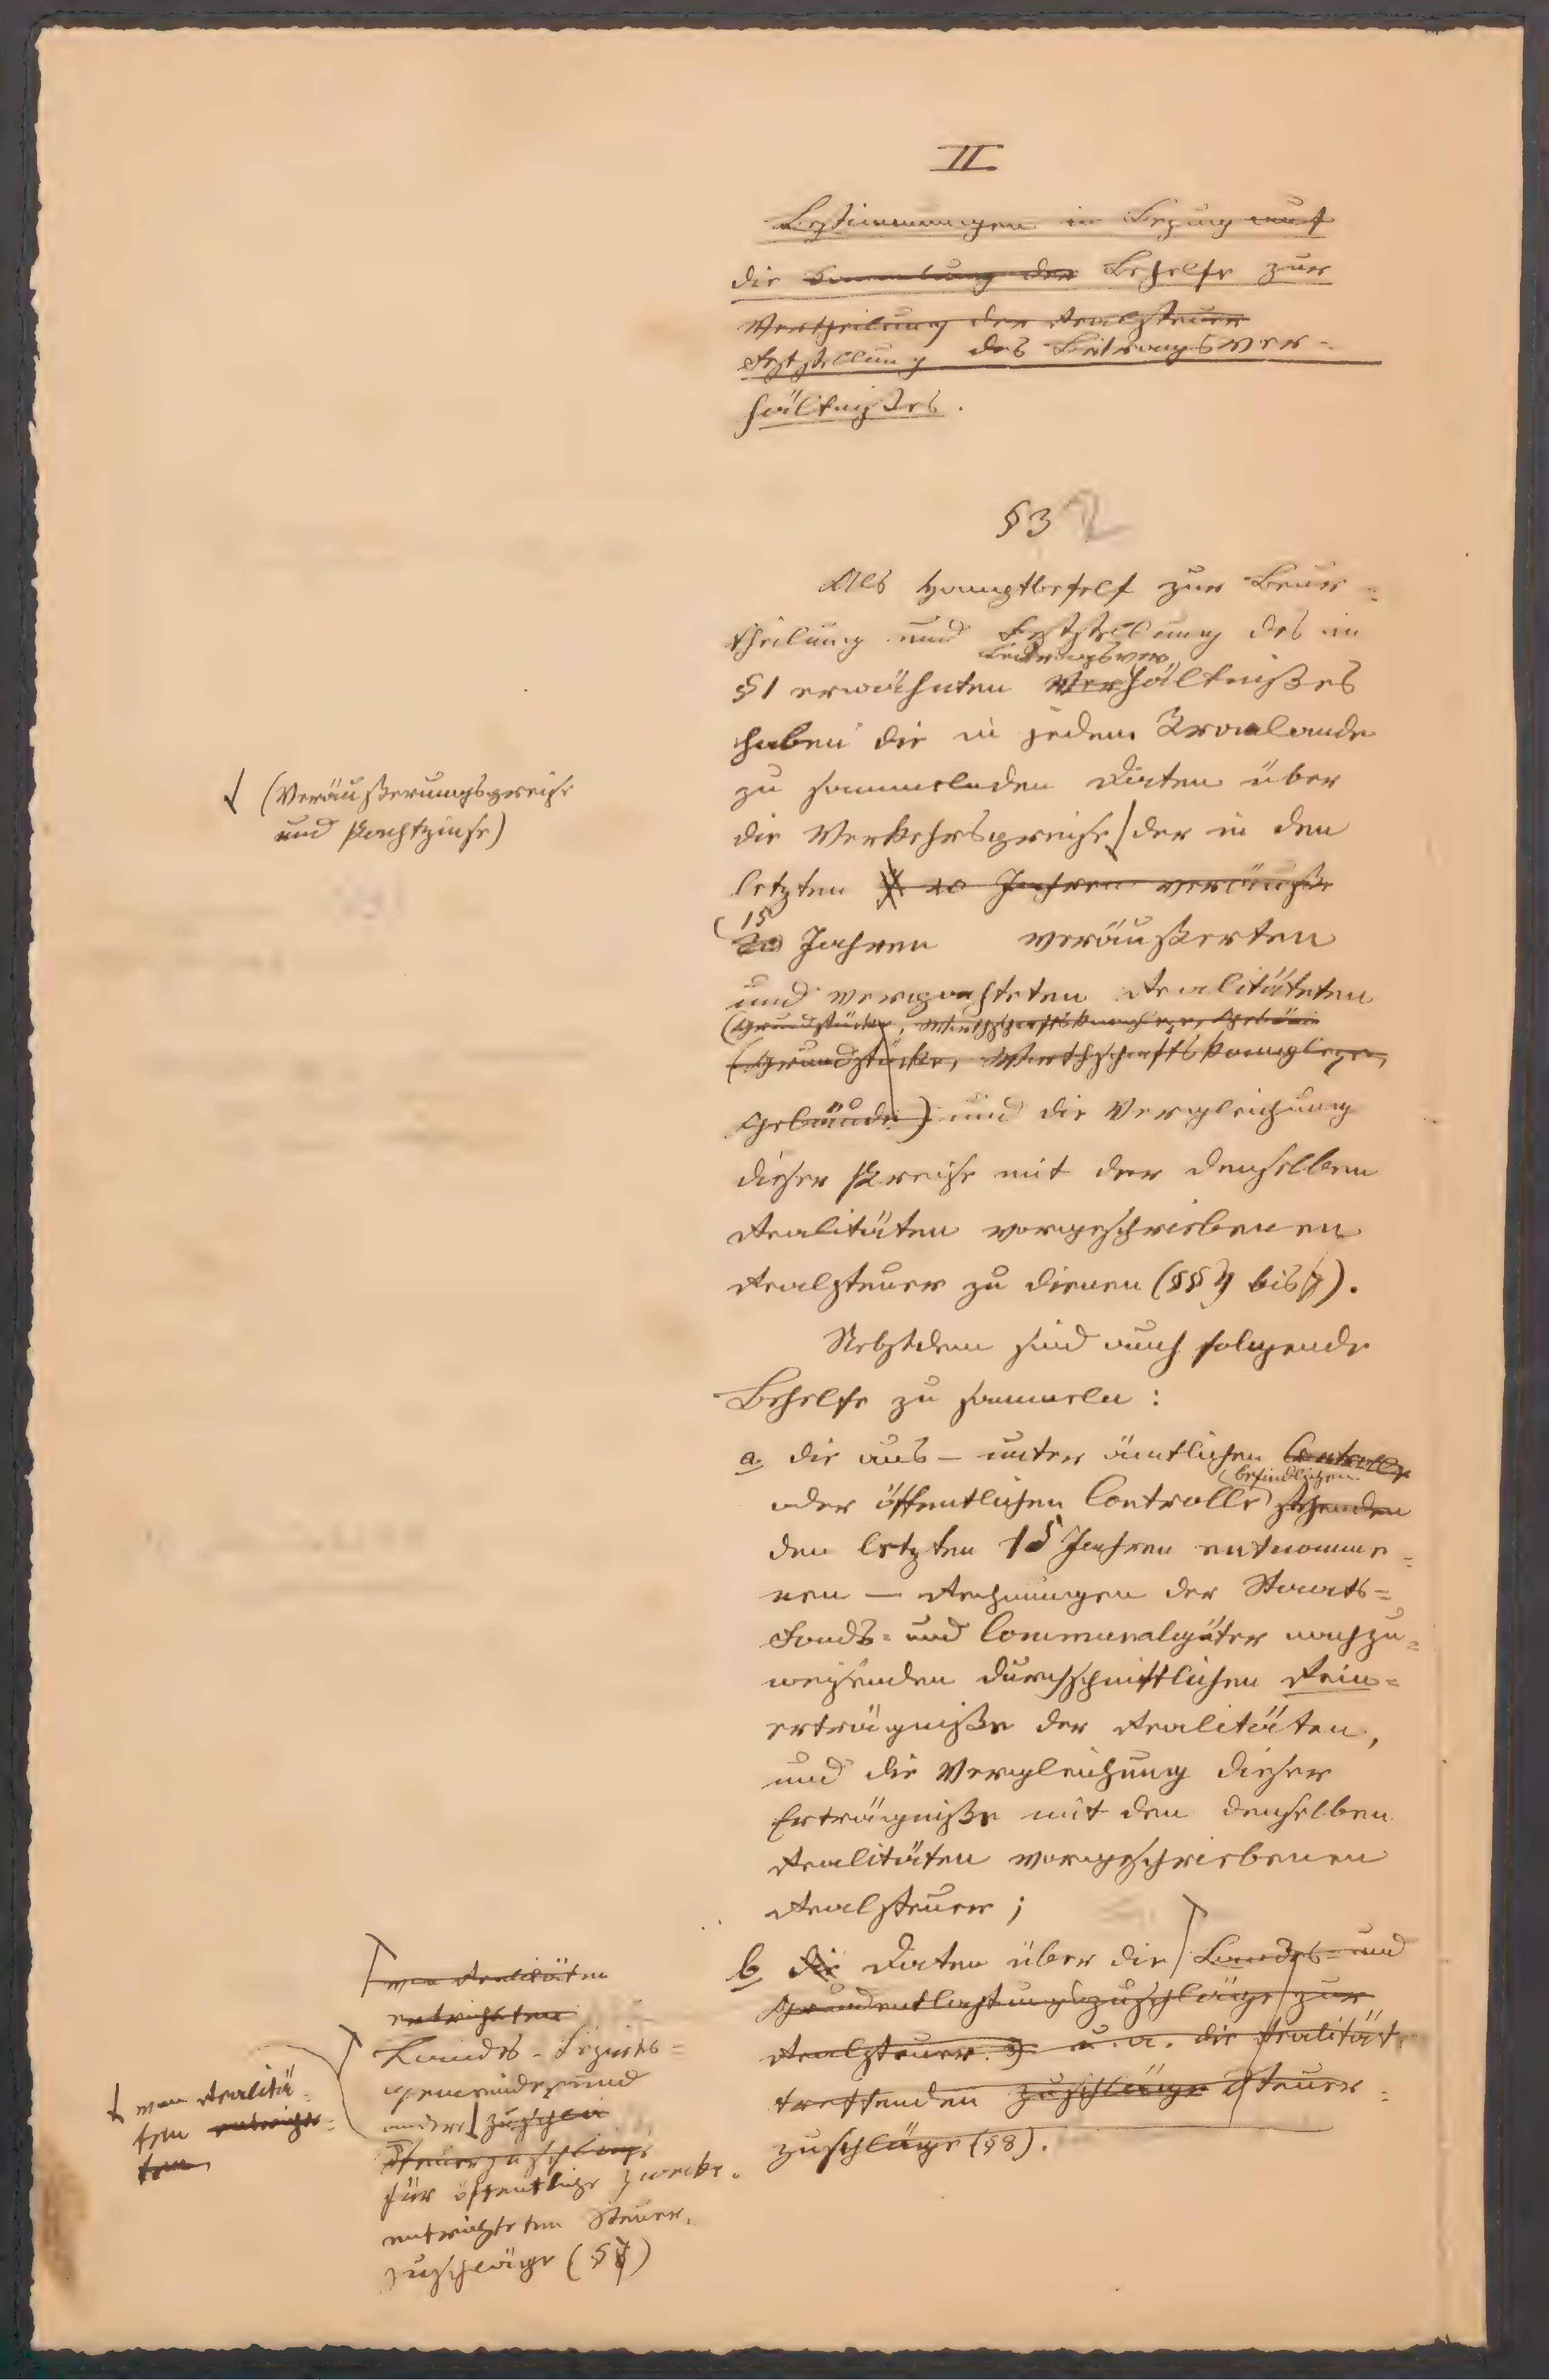 II.
Bestimmungen in Bezug auf
die Sammlung der Behelfe zur
Vertheilung der Realsteuer
Feststellung des Beitragsver-
hältnißes.
§3 2
Als Hauptbehelf zur Beur=
theilung und Feststellung des im
Beitragsver
§1 erwähnten Verhältnißes
haben die in jedem Kronlande
zu sammelnden Daten über
die Verkehrspreise der in den
(Veräußerungspreise
und Pachtzinse)
letzten 20 Jahren veräuße
15
20 Jahren veräußerten
und verpachteten Realitäteten
(Grundstücke, Wirthschaftskomplexe, Gebäu
(Grundstücke, Wirthschaftskomplexe,
Gebäude) und die Vergleichung
dieser Preise mit der denselben
Realitäten vorgeschriebenen
Realsteuer zu dienen (§§ bis).
Nebstdem sind auch folgende
Behelfe zu sammeln:
a. die aus – unter ämtlichen Controlle
befindlichen
oder öffentlichen Controlle stehenden
den letzten 15 Jahren entnomme=
nen – Rechnungen der Staats=
Fonds= und Communalgüter nachzu=
weisenden durchschnittlichen Rein=
erträgniße der Realitäten,
und die Vergleichung dieser
Erträgniße mit den denselben
Realitäten vorgeschriebenen
Realsteuer;
b. die Daten über die Landes= und
Grundentlastungszuschläge zur
Realsteuer u. a. die Realität
treffenden Zuschläge Steuer=
zuschläge (§8).
von Realitäten
entrichteten
Landes- Bezirks=
gemeinde= und
andere Zuschlä
Steuerzuschläge
für öffentliche Zwecke
entrichteten Steuer-
zuschläge (§)
von Realitä-
ten entrichte=
ten